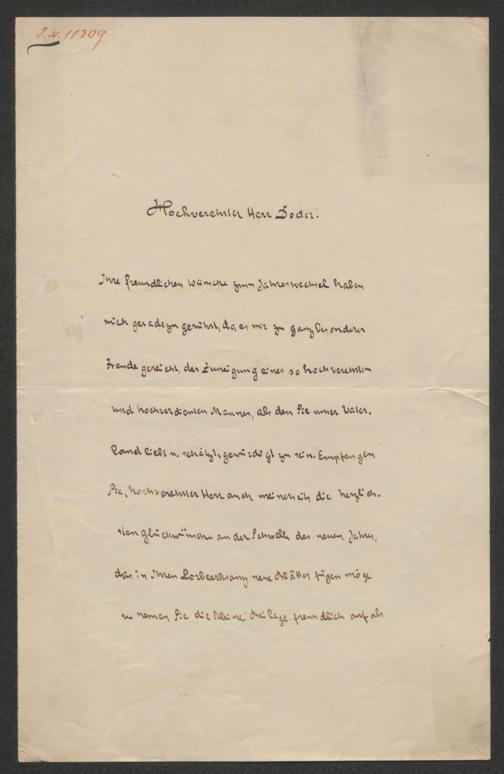 I.N. 11309
Hochverehrter Herr Doctor.
Ihre freundlichen Wünsche zum Jahreswechsel haben
mich geradezu gerührt, da es mir zu ganz besonderer
Freude gereicht, der Zuneigung eines so hochverehrten
und hochverdienten Mannes, als den Sie unser Vater-
land liebt u. schätzt, gewürdigt zu sein. Empfangen
Sie, hochverehrter Herr auch meinerseits die herzlich-
sten Glückwünsche an der Schwelle des neuen Jahres,
das in Ihren Lorbeerkranz neue Blätter fügen möge
u nemen Sie die kleine Beilage freundlich auf als